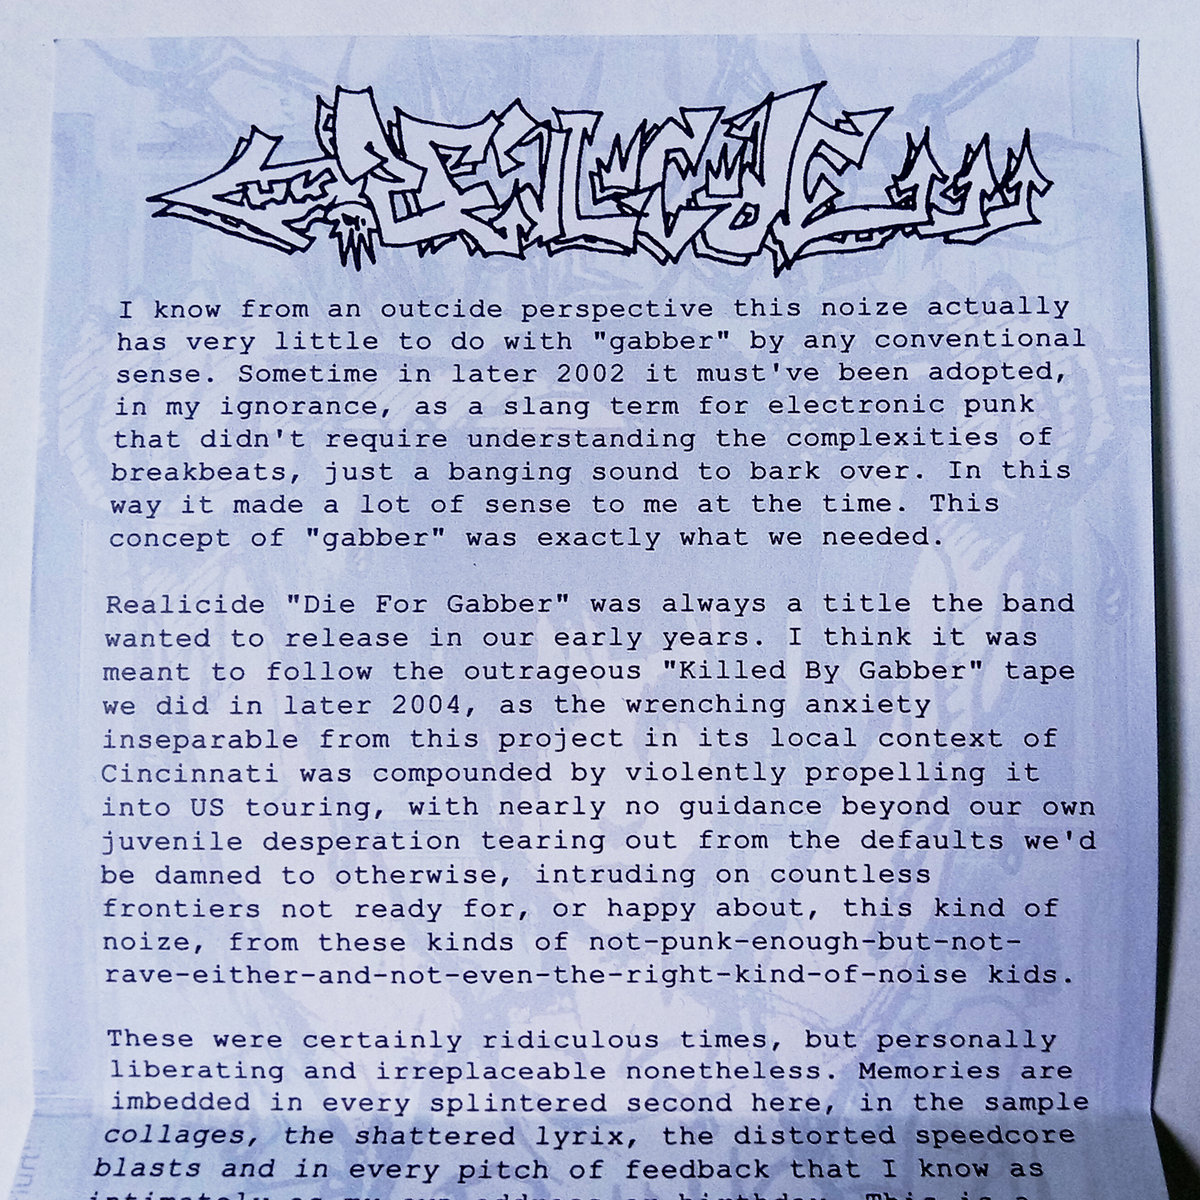 I know from an outcide perspective this noize actually
has very little to do with "gabber" by any conventional
sense. Sometime in later 2002 it must've been adopted,
in my ignorance, as a slang term for electronic punk
that didn't require understanding the complexities of
breakbeats, just a banging sound to bark over. In this
way it made a lot of sense to me at the time. This
concept of "gabber" was exactly what we needed.
Realicide "Die For Gabber" was always a title the band
wanted to release in our early years. I think it was
meant to follow the outrageous "Killed By Gabber" tape
we did in later 2004, as the wrenching anxiety
inseparable from this project in its local context of
Cincinnati was compounded by violently propelling it
into US touring, with nearly no guidance beyond our own
juvenile desperation tearing out from the defaults we'd
be damned to otherwise, intruding on countless
frontiers not ready for, or happy about, this kind of
noize, from these kinds of not-punk-enough-but-not-
rave-either-and-not-even-the-right-kind-of-noise kids.
These were certainly ridiculous times, but personally
liberating and irreplaceable nonetheless. Memories are
imbedded in every splintered second here, in the sample
collages, the shattered lyrix, the distorted speedcore
blasts and in every pitch of feedback that I know as
intimately as my own address or birthday. This is